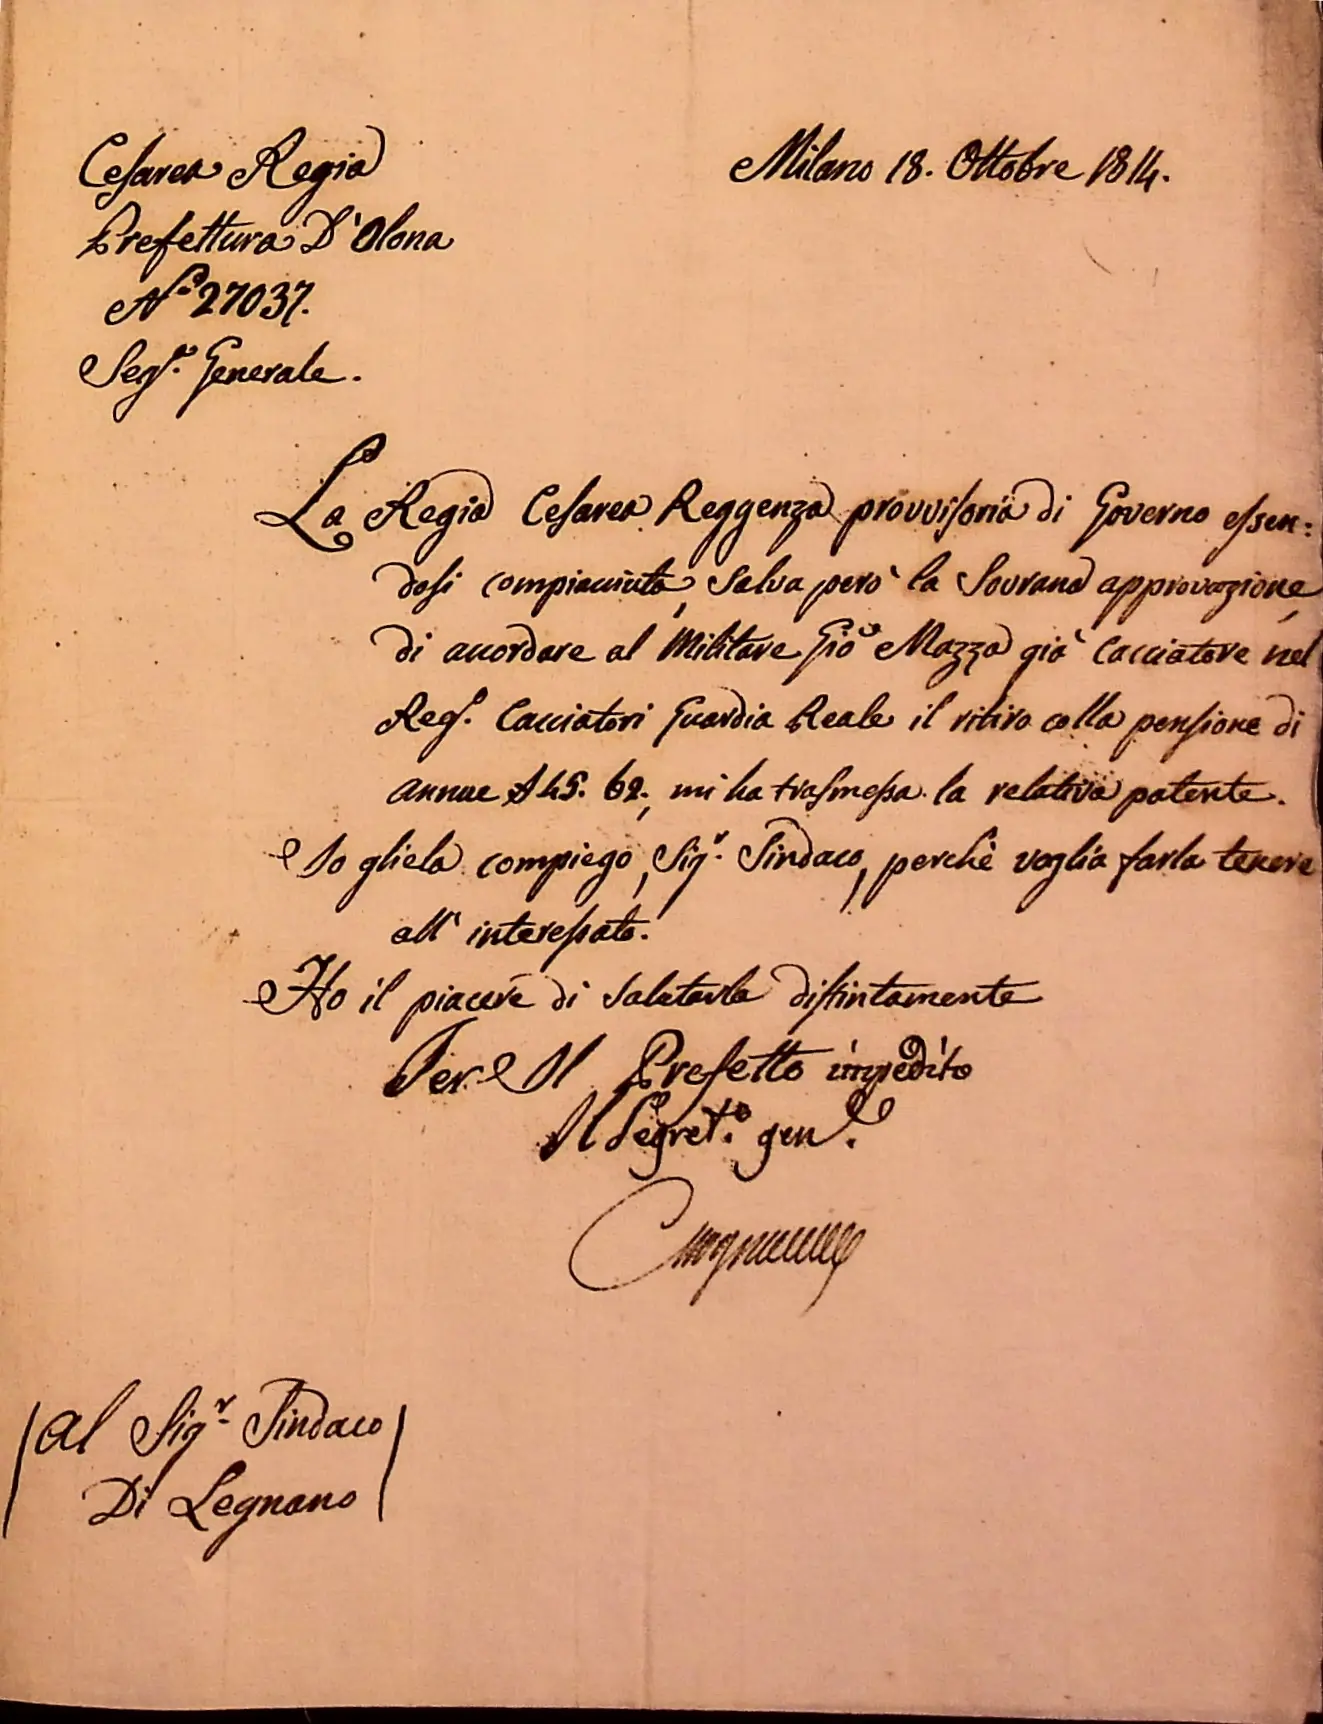 Cesarea Regia
Prefettura D'Olona
N.º 27037.
Seg.ª Generale.
Milano 18. Ottobre 1814.
La Regia Cesarea Reggenza provvisoria di Governo essen=
dosi compiaciuta, salva però la Sovrana approvazione,
di accordare al Militare Gio Mazza già Cacciatore nel
Reg.º Cacciatori Guardia Reale il ritiro colla pensione di
annue 62., mi ha trasmessa la relativa patente.
Io gliela compiego, Sig.r Sindaco, perchè voglia farla tenere
all' interessato.
Ho il piacere di salutarla distintamente
Per Il Prefetto impedito
Il Segret.º gen.e
Al Sig.r Sindaco
Di Legnano